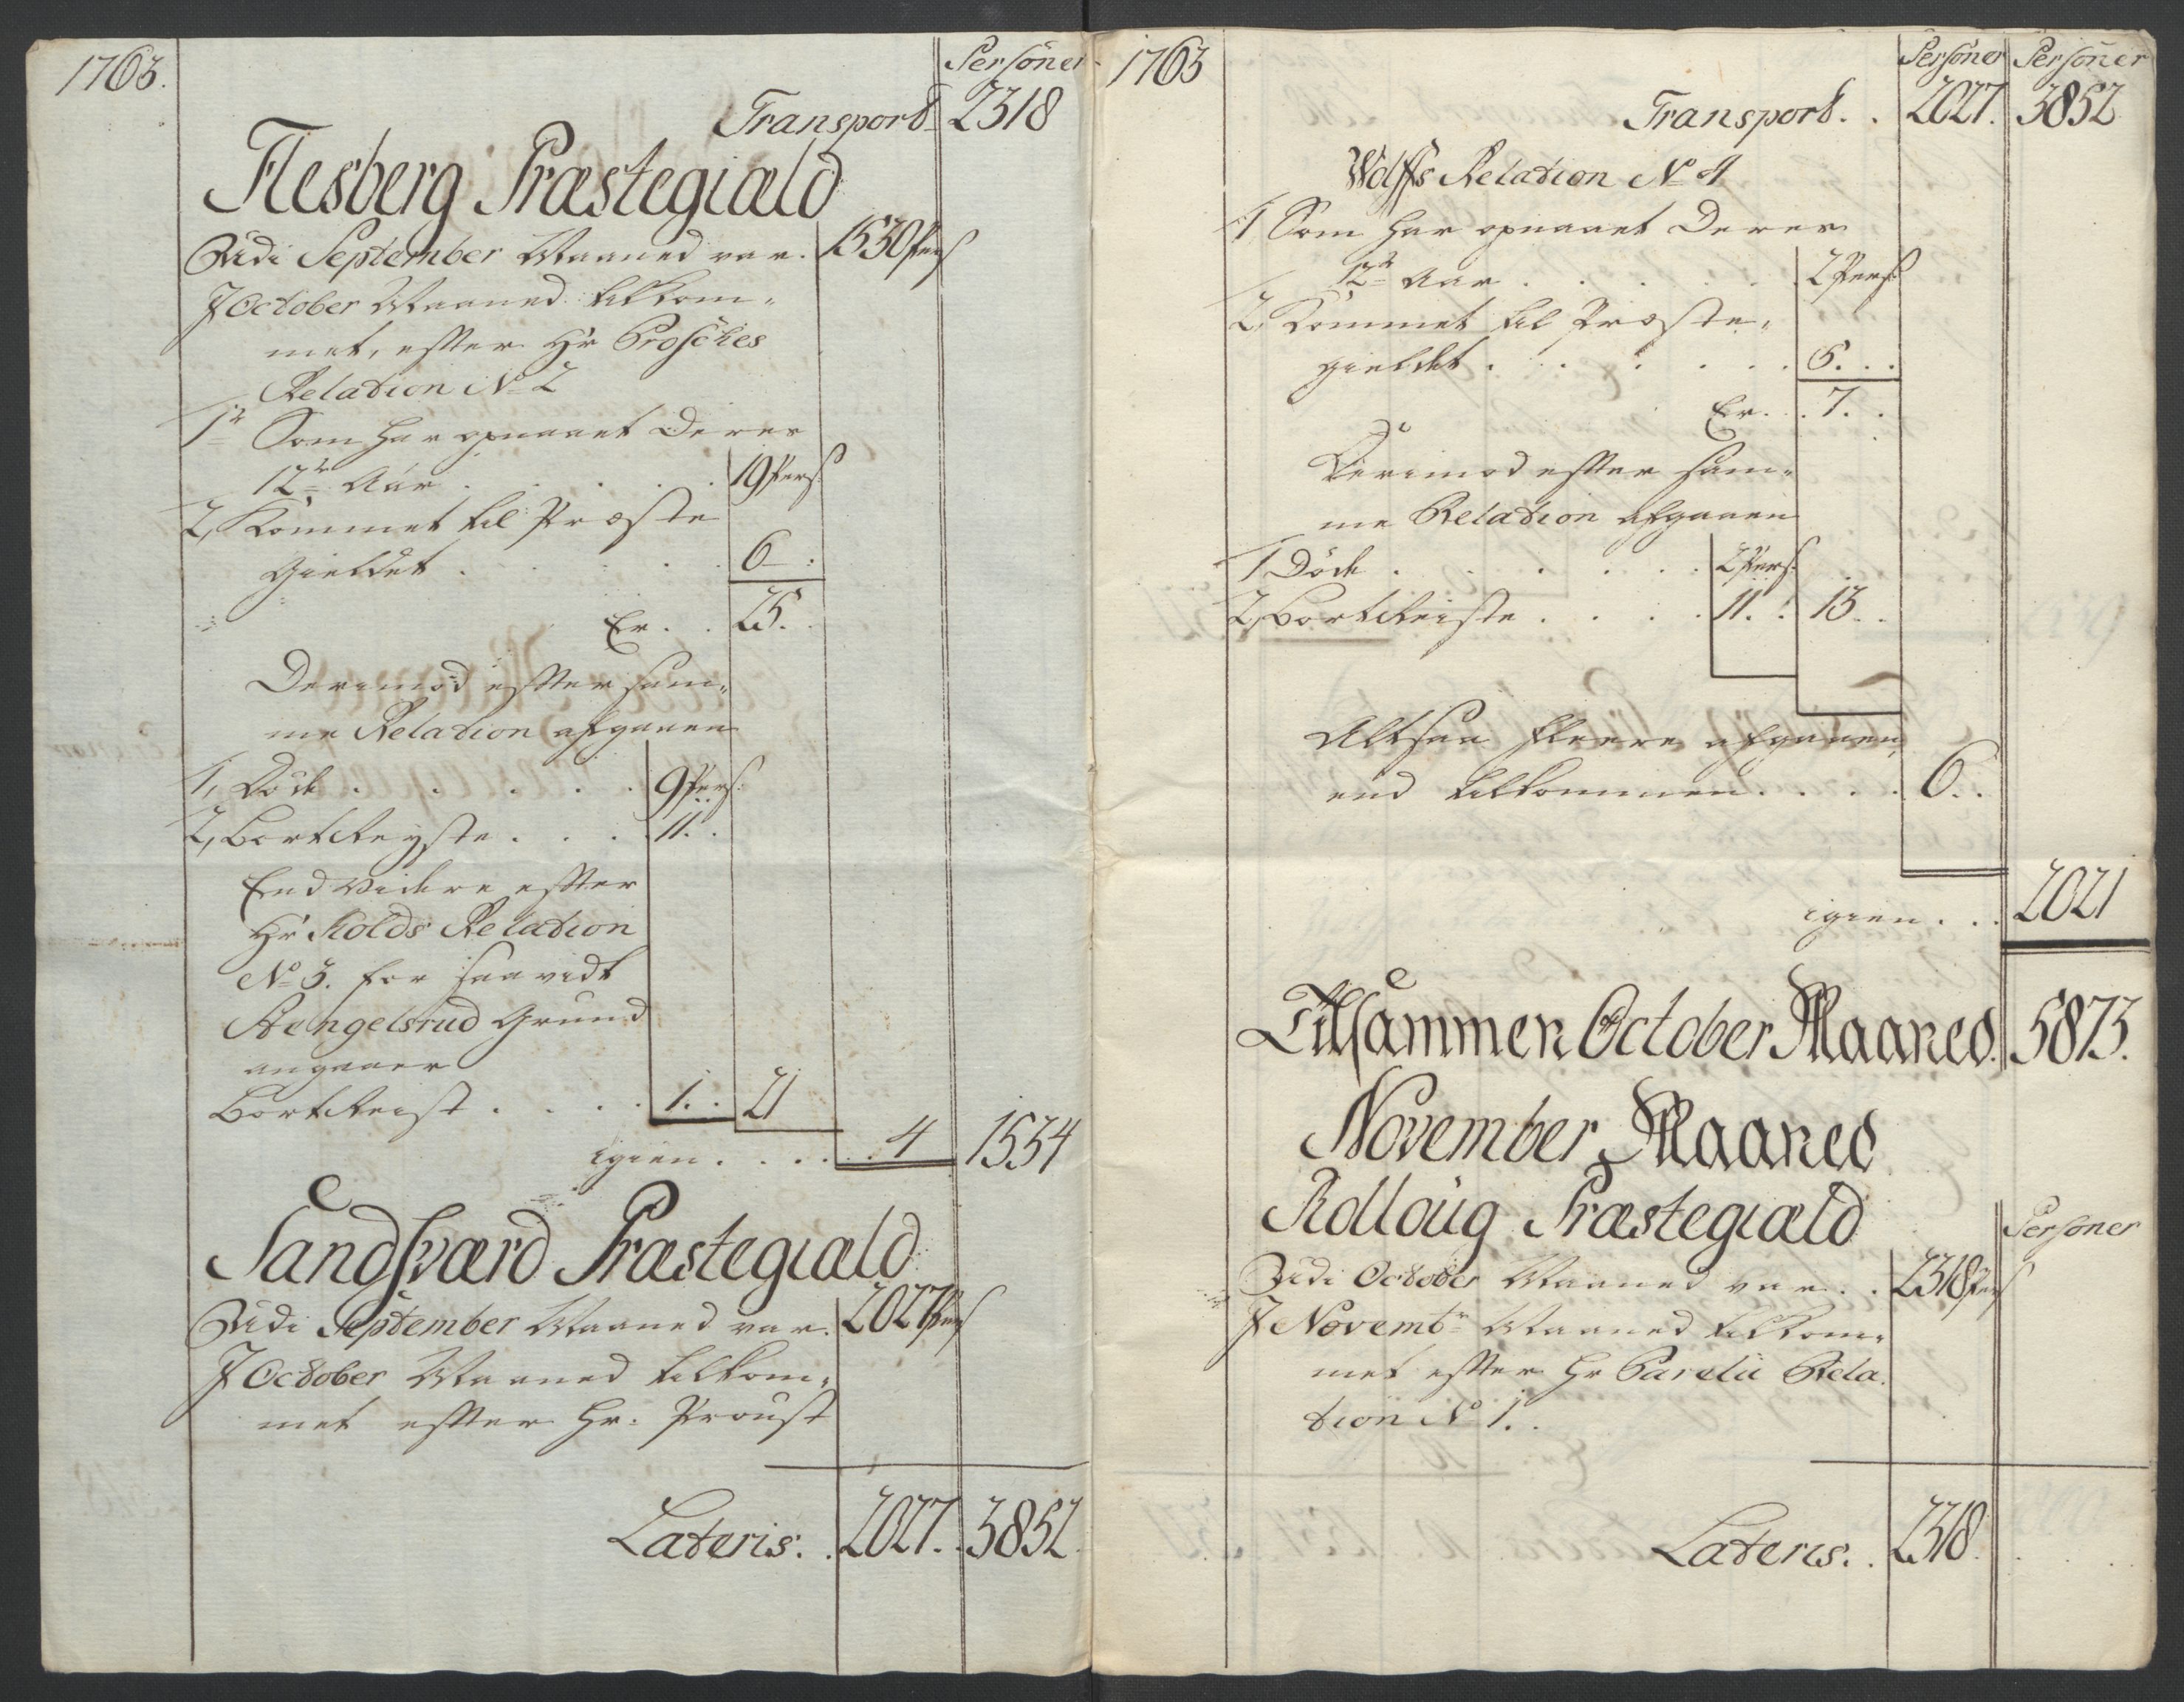 1763.
Personer
Transport 2318
Flesberg Præstegiæld
Udi September Maaned var. 1530 Pers
J October Maaned tilkom-
met, efter Hr Brosches
Relation No 2
1te Som har opnaaet Deres
12te Aar . . . . . 19 Pers:
2, Kommet til Præste
Gieldet . . . . . 6 - :
Er . . 25.
Derimod efter sam-
me Relation afgaaen
1, Døde . . . . . 9 Pers:
2, Bortreyste . . . 11. .
End videre efter
Hr Kolds Relation
No 3. for saavidt
Hengelsrud Grund
angaaer
Bortreist . . . . 1. . 21
igien . . . . . 4 1534
Sandsværd Præstegiæld
Udi September Maaned var. 2027 Pers
J October Maaned tilkom-
met efter Hr: Proust
Lateris: . 2027. . 3852.
1763
Personer Personer
Transport. . 2027. 3852
Wolffs Relation No 4
1, Som har opnaaet Deres
12te Aar . . . . . 2 Pers:
2, Kommet til Præste-
gieldet . . . . . . 5. . .
Er. . . 7. .
Derimod efter sam-
me Relation afgaaen
1 Døde . . . . . . 2 Pers:
2, Bortreiste . . . . 11. : 13. .
Altsaa fleere afgaaen,
end tilkommen. . . . 6. .
igien. . . 2021
Tilsammen October Maaned. 5873.
November Maaned
Rollaug Præstegiæld
Personer
Udi October Maaned var. . 2318 Pers
J Novembr Maaned tilkom-
met efter Hr Parelii Rela-
tion No 1. .
Lateris. . 2318. . . .